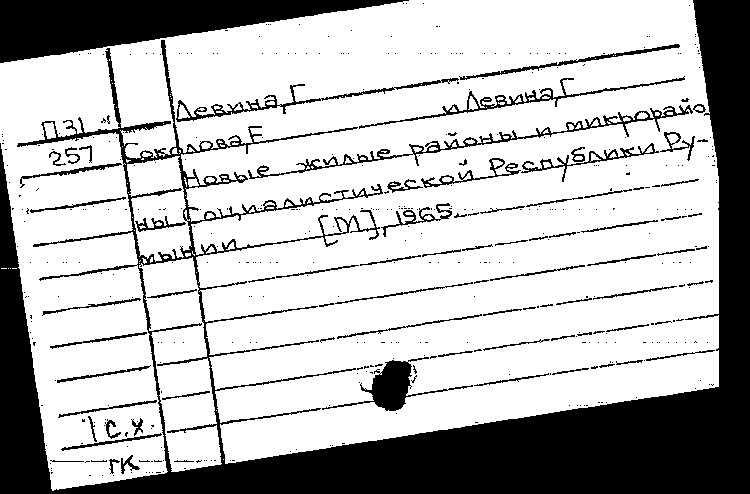 Левина,Г
П31
257
Соколова,Е и Левина,Г
Новые жилые районы и микрорайо
ны Социалистической Республики Ру-
мынии. [М], 1965.
1 с.х.
ГК